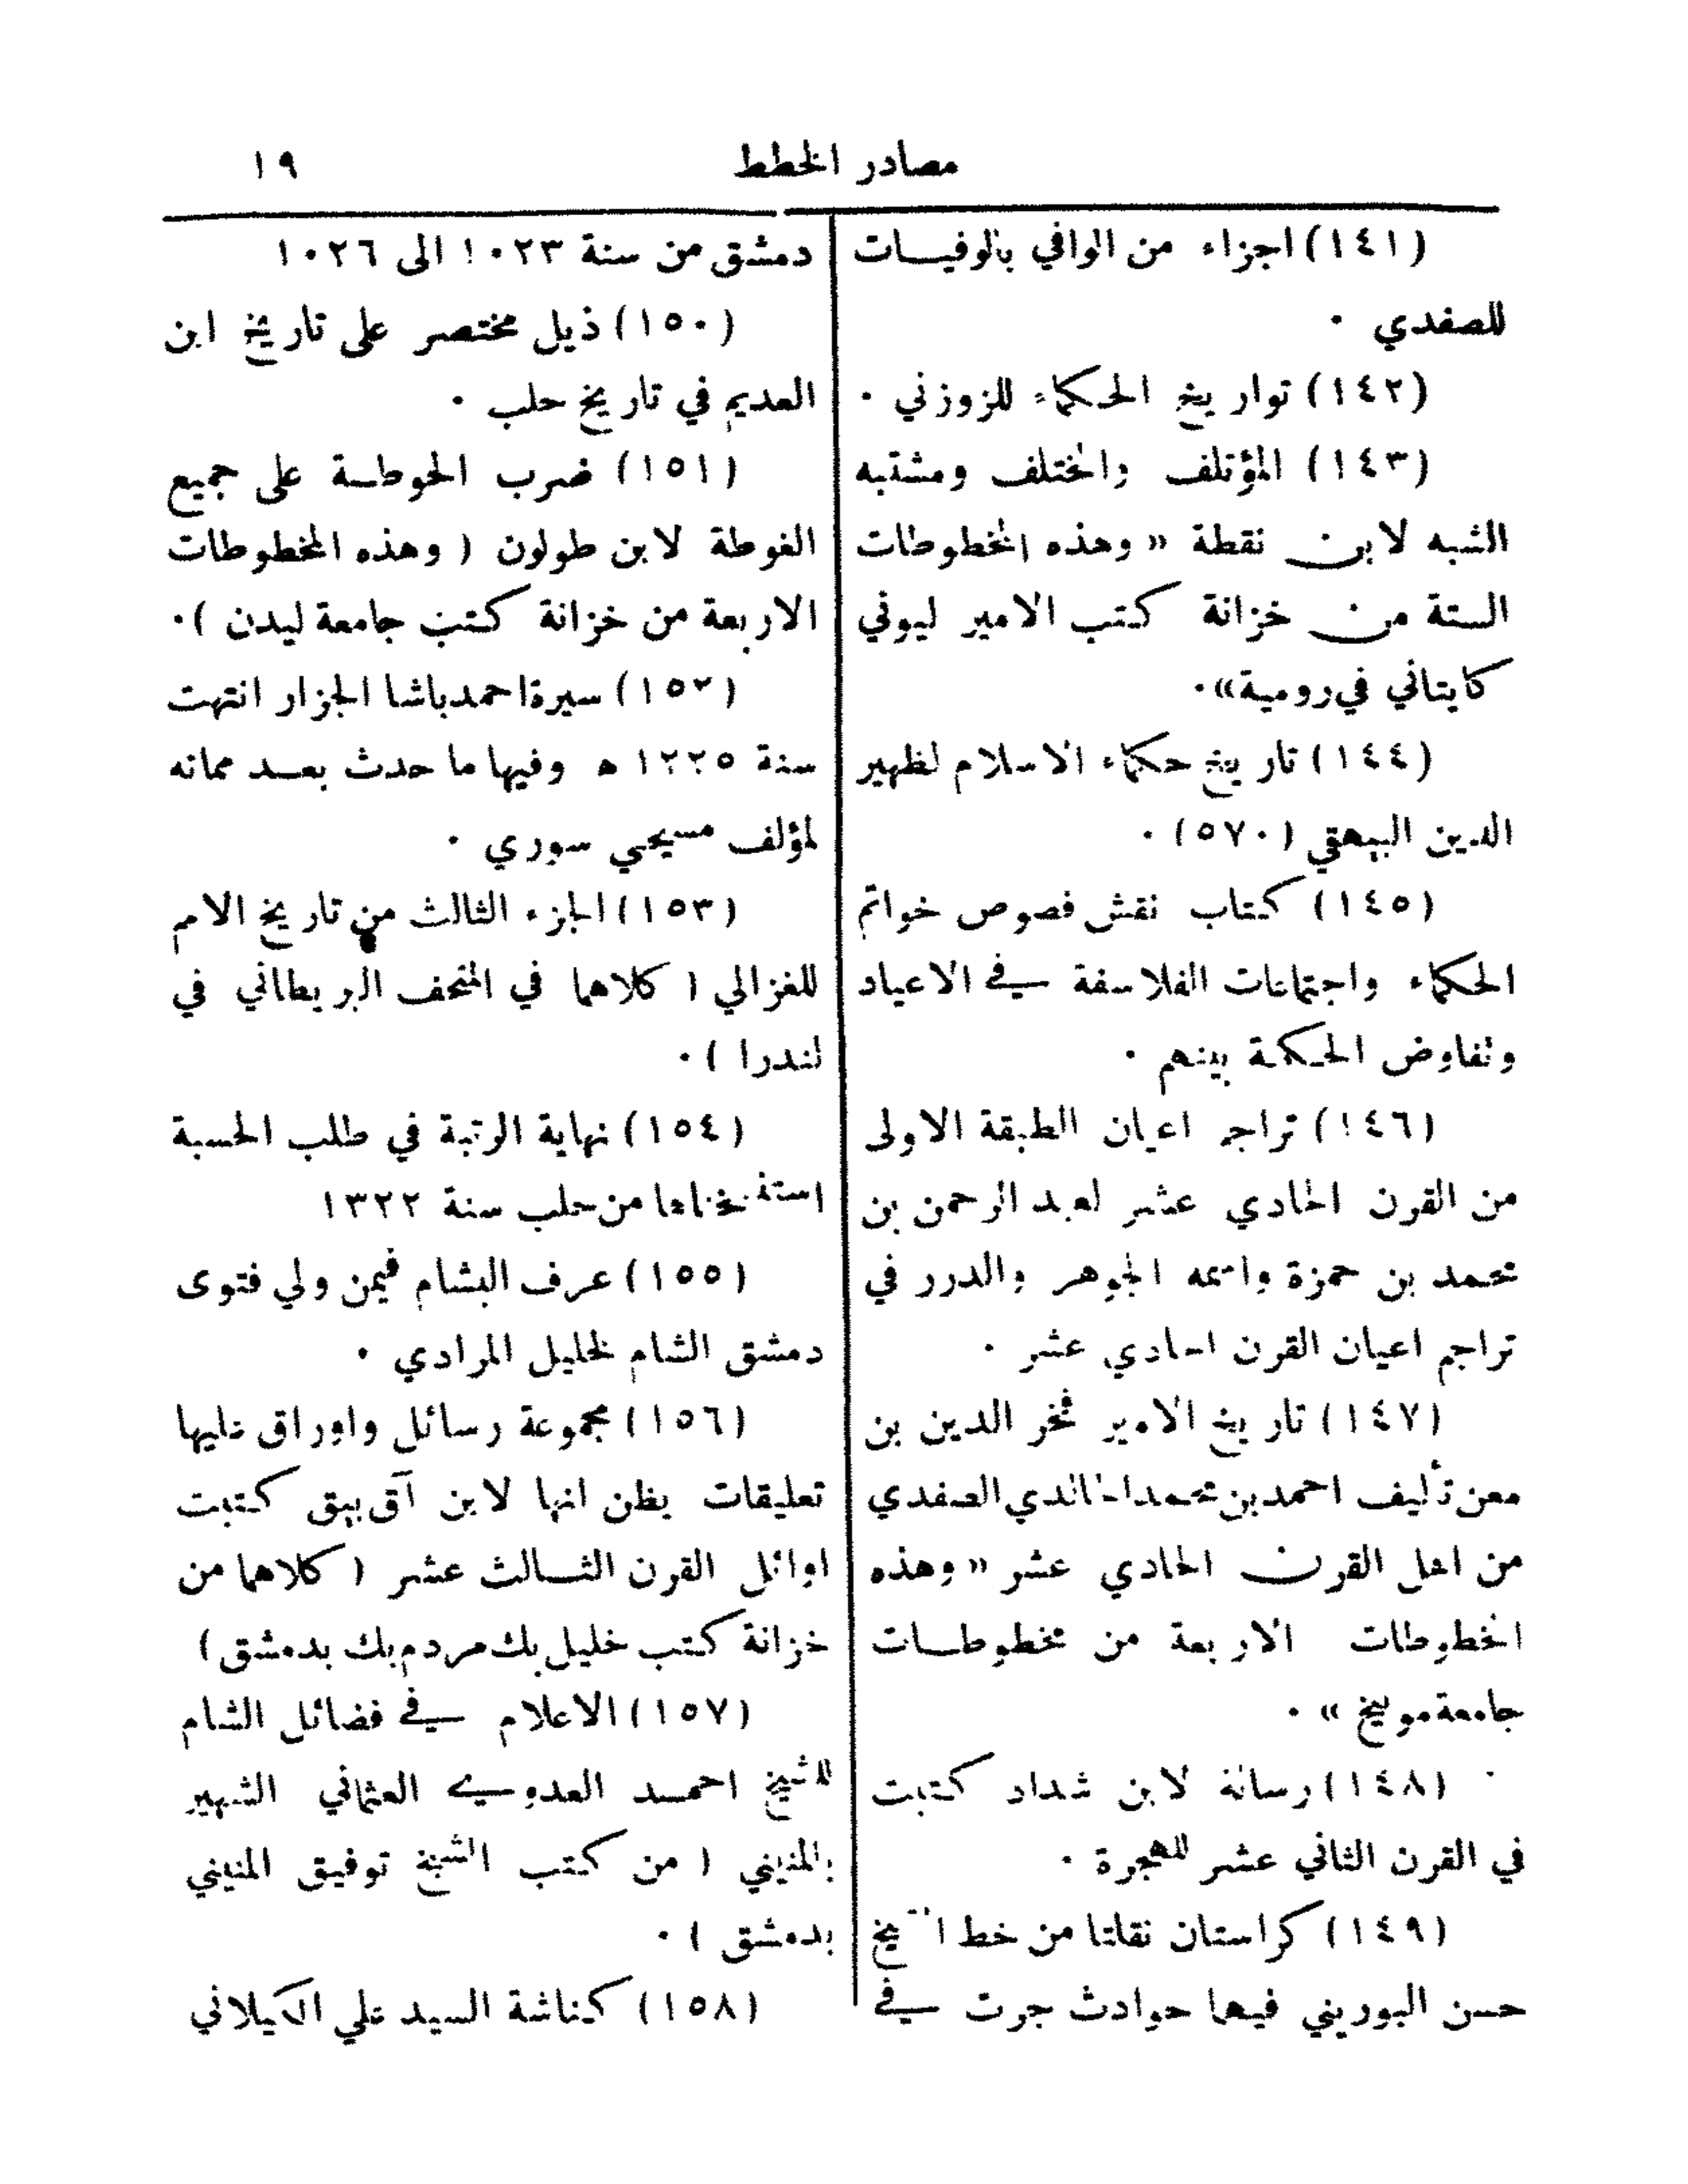 مصادر الخطط ١٩
(١٤١) اجزاء من الوافي بالوفيـات
للصفدي .
(١٤٢) تواريخ الحكماء للزوزني .
(١٤٣) المؤتلف والمختلف ومشتبه
الشبه لابن نقطة « وهذه المخطوطات
الستة من خزانة كتب الامير ليوني
كايتاني في رومية» .
(١٤٤) تاريخ حكماء الاسلام لظهير
الدين البيهقي (٥٧٠) .
(١٤٥) كتاب نقش فصوص خواتم
الحكماء واجتماعات الفلاسفة في الاعياد
وتفاوض الحكمة بينهم .
(١٤٦) تراجم اعيان الطبقة الاولى
من القرن الحادي عشر لعبد الرحمن بن
محمد بن حمزة واسمه الجوهر والدرر في
تراجم اعيان القرن الحادي عشر .
(١٤٧) تاريخ الامير فخر الدين بن
معن تأليف احمد بن محمد الخالدي الصفدي
من اهل القرن الحادي عشر « وهذه
المخطوطات الاربعة من مخطوطـات
جامعة مونيخ » .
(١٤٨) رسالة لابن شداد كتبت
في القرن الثاني عشر للهجرة .
(١٤٩) كراستان نقلتا من خط الشيخ
حسن البوريني فيهما حوادث جرت في
دمشق من سنة ١٠٢٣ الى ١٠٢٦
(١٥٠) ذيل مختصر على تاريخ ابن
العديم في تاريخ حلب .
(١٥١) ضرب الحوطـة على جميع
الغوطة لابن طولون ( وهذه المخطوطات
الاربعة من خزانة كتب جامعة ليدن ) .
(١٥٢) سيرة احمد باشا الجزار انتهت
سنة ١٢٢٥ ه وفيها ما حدث بعـد مماته
لمؤلف مسيحي سوري .
(١٥٣) الجزء الثالث من تاريخ الامم
للغزالي ( كلاهما في المتحف البريطاني في
لندرا ) .
(١٥٤) نهاية الرتبة في طلب الحسبة
استنسخناها من حلب سنة ١٣٢٢
(١٥٥) عرف البشام فيمن ولي فتوى
دمشق الشام لخليل المرادي .
(١٥٦) مجموعة رسائل واوراق عليها
تعليقات يظن انها لابن آق بيق كتبت
اوائل القرن الثـالث عشر ( كلاهما من
خزانة كتب خليل بك مردم بك بدمشق )
(١٥٧) الاعلام في فضائل الشام
للشيخ احمـد العدوي العثماني الشهير
بالمنيني ( من كتب الشيخ توفيق المنيني
بدمشق ) .
(١٥٨) كناشة السيد علي الكيلاني